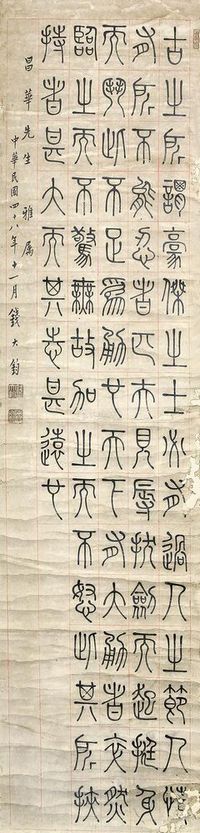 古之所謂豪傑之士必有過人之節人情
有所不能忍者匹夫見辱拔劍而起挺身
而鬥此不足為勇也天下有大勇者卒然
臨之而不驚無故加之而不怒此其所挾
持者甚大而其志甚遠也
昌華先生雅屬
中華民國四十八年十一月錢大鈞